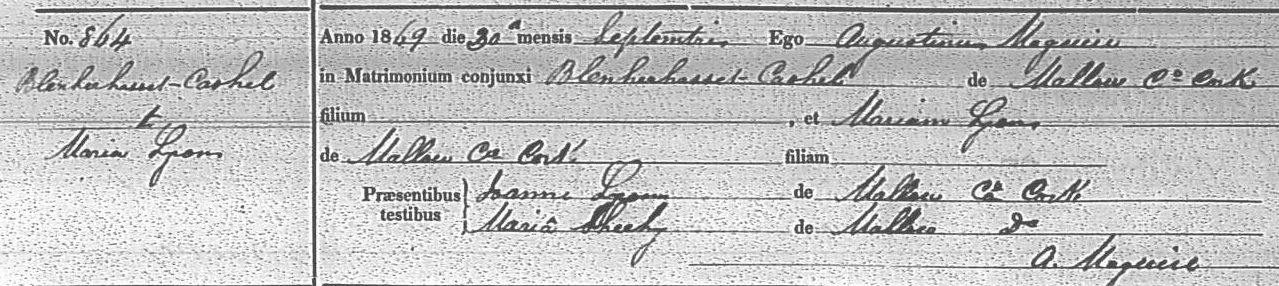 No. 864
Blenherhasset-Cashel
to
Maria Lyons
Anno 1869 die 30ª mensis Septembris Ego Augustinus Maguire
in Matrimonium conjunxi Blenherhasset-Cashel de Mallow Co Cork
filium , et Mariam Lyons
de Mallow Co Cork filiam
Præsentibus testibus } Joanne Lyons de Mallow Co Cork
Mariâ Sheehy de Mallow Do
A. Maguire